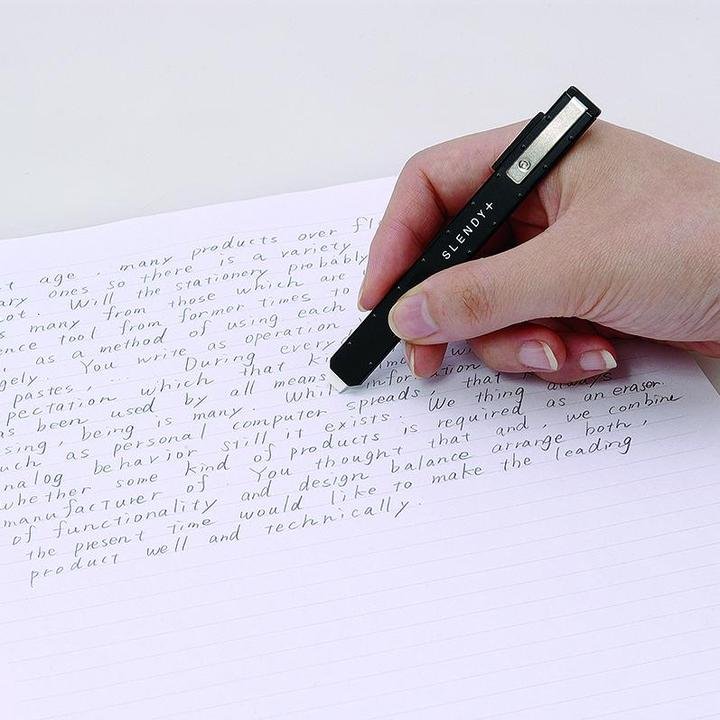 t age , many products over fl
ary ones so there is a variety
ot . Will the stationery probably
s many from those which are
ence tool from former times to
, as a method of using each
gely . You write as operation
pastes , ... During every
pectation which that ki
as been used by all means information
sing , being is many . Whil spreads , that always
uch as personal computer We thing as an eraser
nalog behavior still it exists . is required
whether some kind of products and , we combine
manufacturer of You thought that arrange both ,
of functionality and design balance the leading
the present time would like to make
product well and technically .
SLENDY+